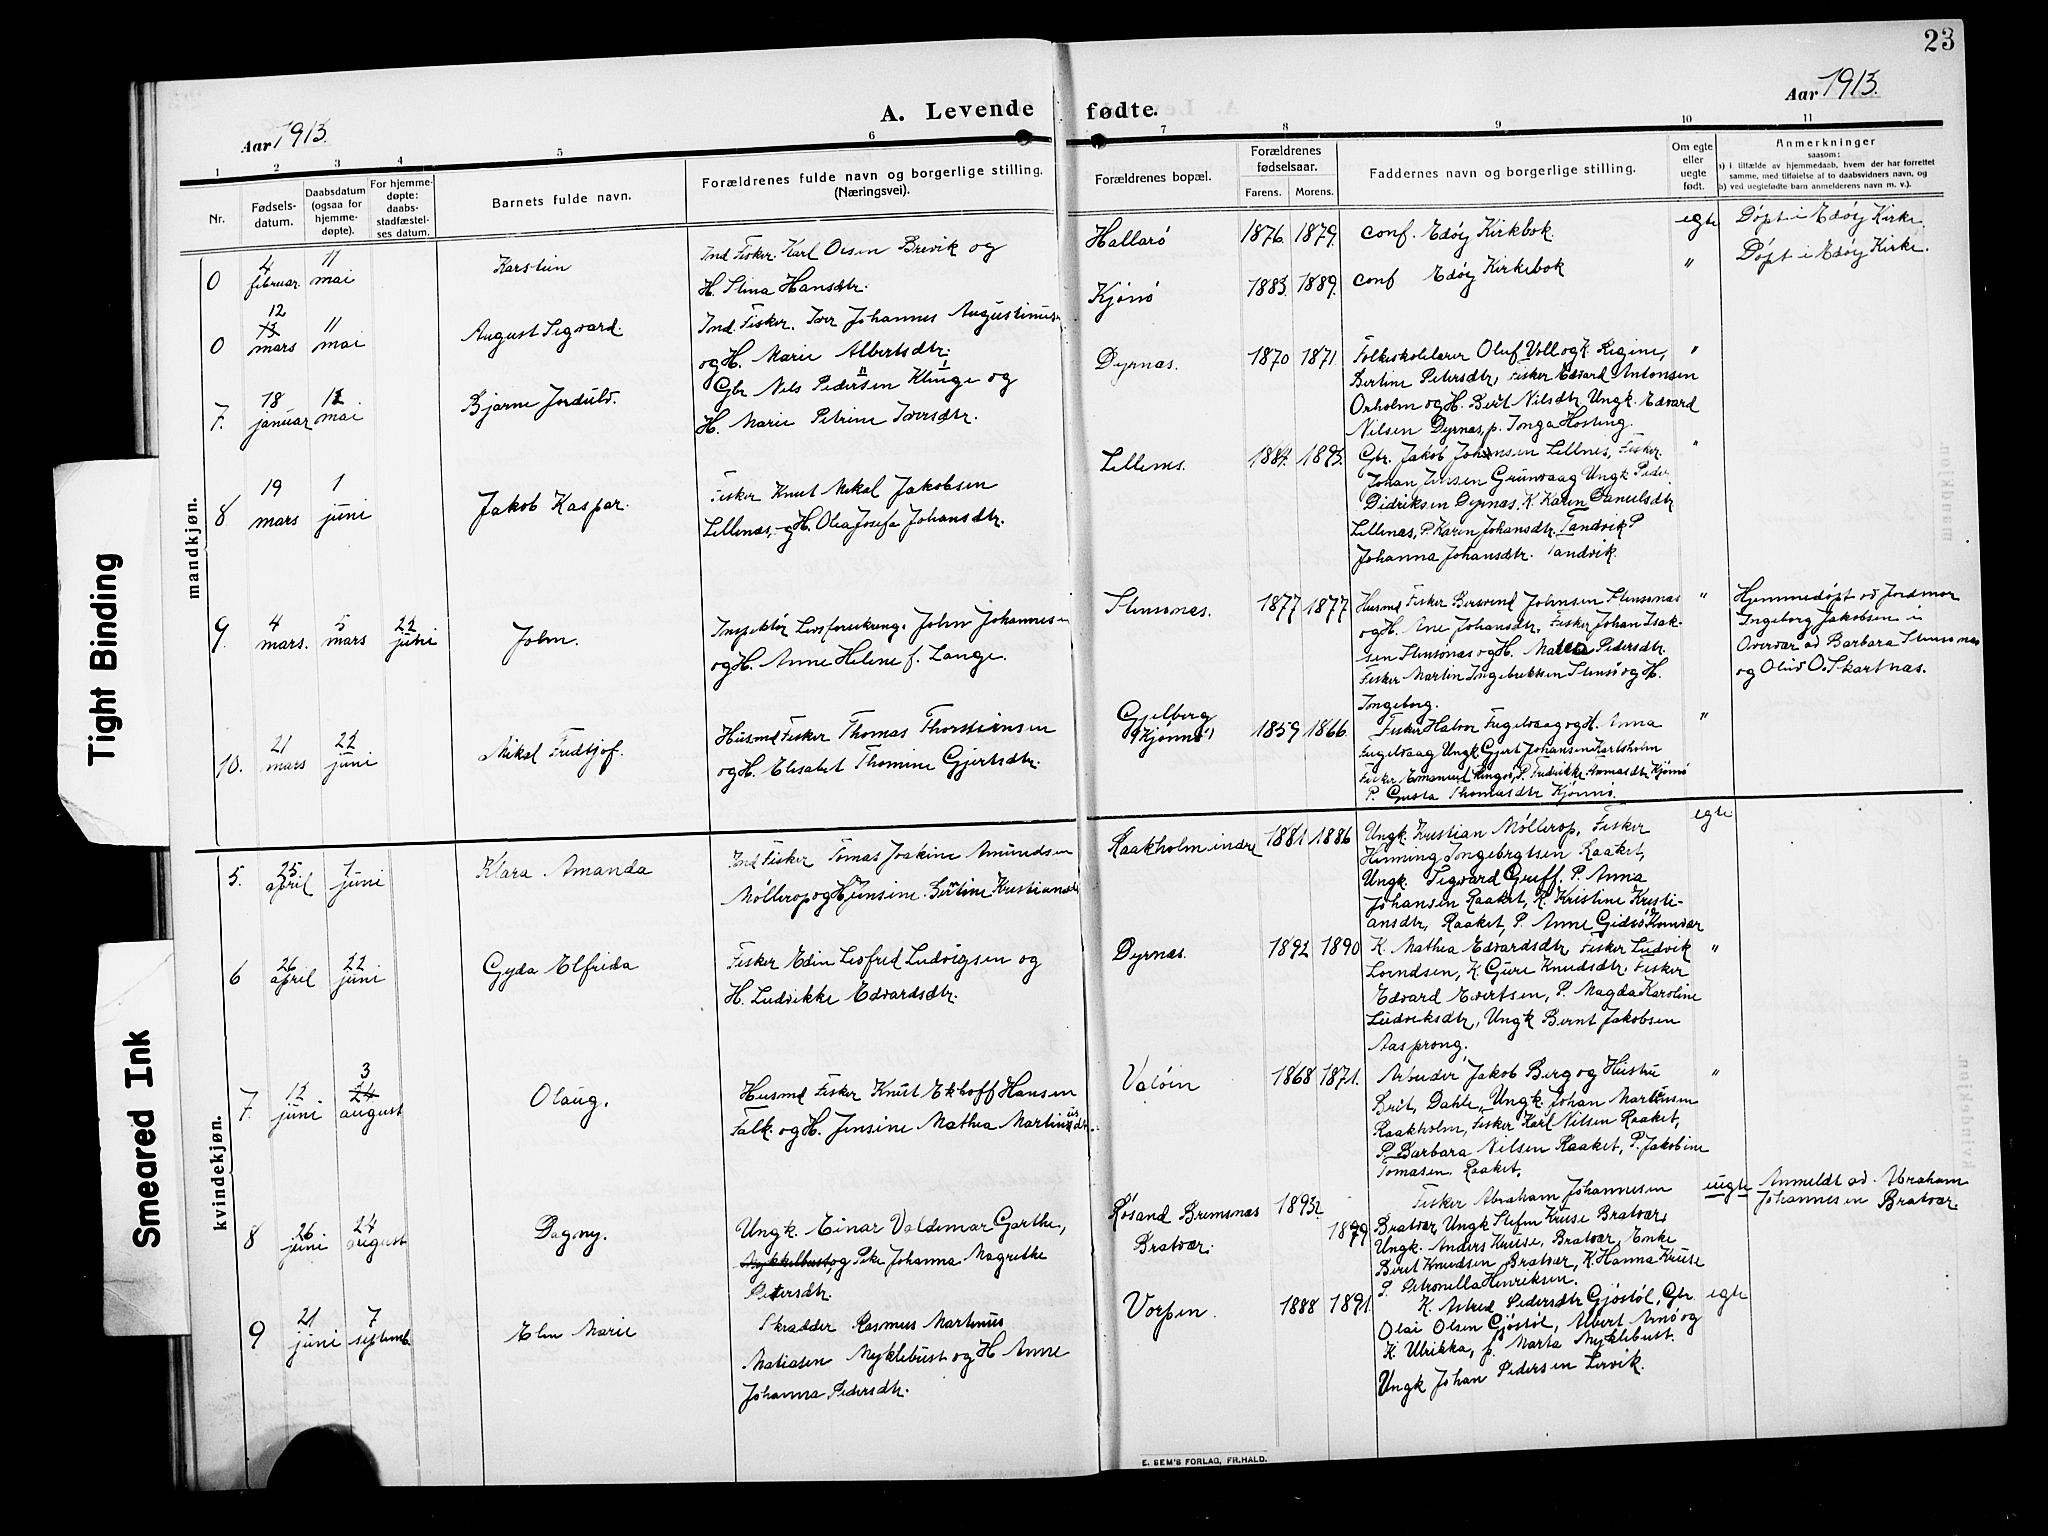 23
A. Levende fødte.
Aar 1913.
Aar 1913.
1 2 3 4 5 6 7 8 9 10 11
Nr.
Fødselsdatum.
Daabsdatum (ogsaa for hjemmedøpte).
For hjemmedøpte: daabsstadfæstelses datum.
Barnets fulde navn.
Forældrenes fulde navn og borgerlige stilling.
(Næringsvei).
Forældrenes bopæl.
Forældrenes fødselsaar.
Farens. Morens.
Faddernes navn og borgerlige stilling.
Om egte eller uegte født.
Anmerkninger
saasom:
a) i tilfælde av hjemmedaab, hvem der har forrettet
samme, med tilføielse af to daabsvidners navn, og
b) ved uegtefødte barn anmelderens navn m. v.).
mandkjøn.
0
4 februar.
11 mai
Karstein
Ind. Fisker. Karl Olsen Brevik og
H. Stina Hansdtr.
Hallarø
1876. 1879.
conf. Edøy Kirkbok.
egte
Døpt i Edøy Kirke.
0
12
13
mars
11 mai
August Sigvard.
Ind. Fisker. Iver Johannes Augustinus
og H. Marie Albertsdtr.
Kjønø
1883. 1889.
conf Edøy Kirkebok
"
Døpt i Edøy Kirke.
7.
18 januar
mai
Bjarne Jordulv.
Gbr Nils Pedersen Klinge og
H. Marie Petrine Iversdtr.
Dyrnas.
1870 1871.
Folkeskolelærer Oluf Voll og K. Regine,
Bertine Petersdtr, Fisker Edvard Antonsen
Orholm og H. Berit Nilsdtr. Ungk. Edvard
Nilsen Dyrnas, p. Inga Hosting.
"
8
19 mars
1 juni
Jakob Kaspar.
Fisker Knut Mikal Jakobsen
Lillenas, og H. Olea Josefa Johansdtr.
Lillens.
1884. 1893.
Gbr. Jakob Johansen Lillnes, Fisker
Johan Jensen Grunvaag Ungk Peder
Didriksen Dyrnas, K. Karen Danielsdtr
Lillenas, P. Karen Johansdtr. Tandvik P
Johanna Johansdtr. Tandvik.
"
9.
4 mars.
5 mars
22 juni
John.
Inspektør Livsforsikring. John Johannesen
og H. Anne Helene f. Lange.
Stensønas.
1877 1877
Husmd Fisker Bersvend Johnsen Stensønas
og H. Ane Johansdtr, Fisker Johan Isak-
sen Stensønas og H. Matea Pedersdtr.
Fisker Martin Ingebriktsen Stensø og H.
Ingeborg.
"
Hjemmedøpt av Jordmor
Ingeborg Jakobsen i
Overvær av Barbara Stensønas
og Oliv O. Skartnas.
10.
21 mars
22 juni
Mikal Fredtjof.
Husmd Fisker Thomas Thorsteinsen
og H. Elisabet Thomine Gjertsdtr.
Gjelberg
(Kjønnø)
1859 1866.
Fisker Halvor Fugelvaag og H. Anna
Fugelvaag Ungk. Gjert Johansen Karlsholm
Fisker Emanuel Ringø, P. Fredrikke Tomasdtr Kjønnø
P. Gusta Thomasdtr Kjønnø.
"
kvindekjøn.
5.
25. april
1. juni
Klara Amanda
Ind Fisker Tomas Joakim Amundsen
Møllerop og H Jensine Bertine Kristiansdtr
Raakholm indre
1881 1886
Ungk. Kristian Møllerop, Fisker
Henning Ingebrgtsen Raaket,
Ungk. Sigvard Greff. P. Anna
Johansen Raaket, K. Kristine Kristi-
ansdtr, Raaket, P. Anne
egte
6
26 april
22 juni
Gyda Elfrida
Fisker Edin Levfred Ludvigsen og
H. Ludvikke Edvardsdtr.
Dyrnas.
1892 1890
K. Mathea Edvardsdtr, Fisker Ludvik
K. Guri Knudsdtr. Fisker
Edvard Evertsen, P. Magda Karoline
Ludviksdtr, Ungk Bernt Jakobsen
Aasprong.
"
7.
12 juni
3
24
august
Olaug.
Husmd Fisker Knut Ekhoff Hansen
Falk. og H. Jensine Mathea Martinusdtr.
Valøin
1868 1871.
Arbeider Jakob Berg og Hustru
Brit, Dahle, Ungk. Johan Martinsen
Raakholm, Fisker Karl Nilsen Raaket,
P. Barbara Nilsen Raaket, P. Jakobine
Tomasen. Raaket.
"
8
26 juni
24 august
Dagny.
Ungk. Einar Valdemar Garthe,
Mykkelbust, og Pike Johanna Magrethe
Petersdtr.
Røsand Bremsnas
Bratvær.
1893.
1879
Fisker Abraham Johannesen
Bratvær, Ungk Stefan Kruse Bratvær,
Ungk. Anders Kruse, Bratvær, Enke
Berit Knudsen Bratvær, K. Hanna Kruse
P. Petronella Henriksen.
uegte
Anmeldt av. Abraham
Johannesen Bratvær.
9
21 juni
7 septemb.
Elen Marie
Skradder Rasmus Martinus
Matiasen Myklebust og H Anne
Johanna Pedersdtr.
Vorpen.
1888 1891.
K. Astrid Pedersdtr Gjøstøl, Gbr
Olai Olsen Gjøstøl, Albert Arnø og
K. Ulrikka, p. Marta Myklebust.
Ungk Johan Pedersen Lervik.
egte
E. SEM'S FORLAG, FR.HALD.
Tight Binding
Smeared Ink